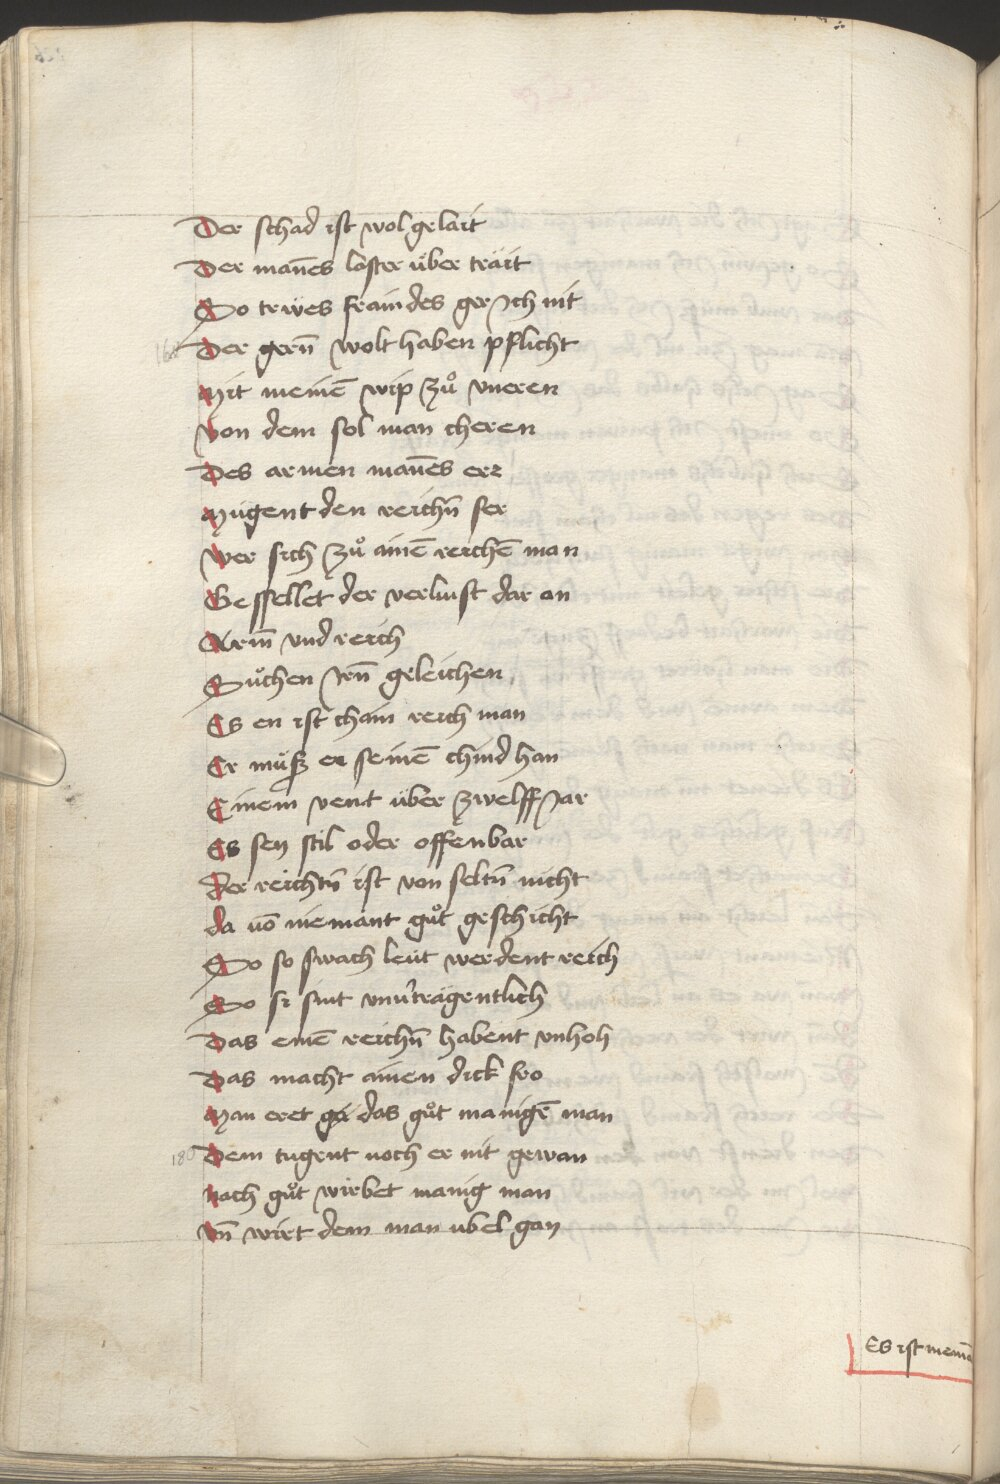 Der schad ist wol gelait
Der mañes laster über träit
So trẅes fraindes ger Jch nit
Der gerñ wolt haben pflicht
Mit meinē wip zů vneren
Von dem sol man cheren
Des armen mañes err
Mügent den reichñ ser
Wer sich zů ainē reichē man
Gesellet der verlüst dar an
Arm̃ vnd reich
Sůchen Jrñ geleichen
Es en ist chain reich man
Er müß er seinē chind han
Einem vent über zwelff Jar
Es sey stil oder offenbar
Der reichtũ ist von seltñ nicht
da võ niemant gůt geschicht
So so swach leüt werdent reich
So si sint vnu̇rtragentlich
Das einē reichñ habent vnhoh
Das macht ainen dick fro
Man eret gä das gůt manigē man
Dem tugent noch er nit gewan
Nach gůt wirbet manig man
Vñ wirt dem man übel gan
Es ist